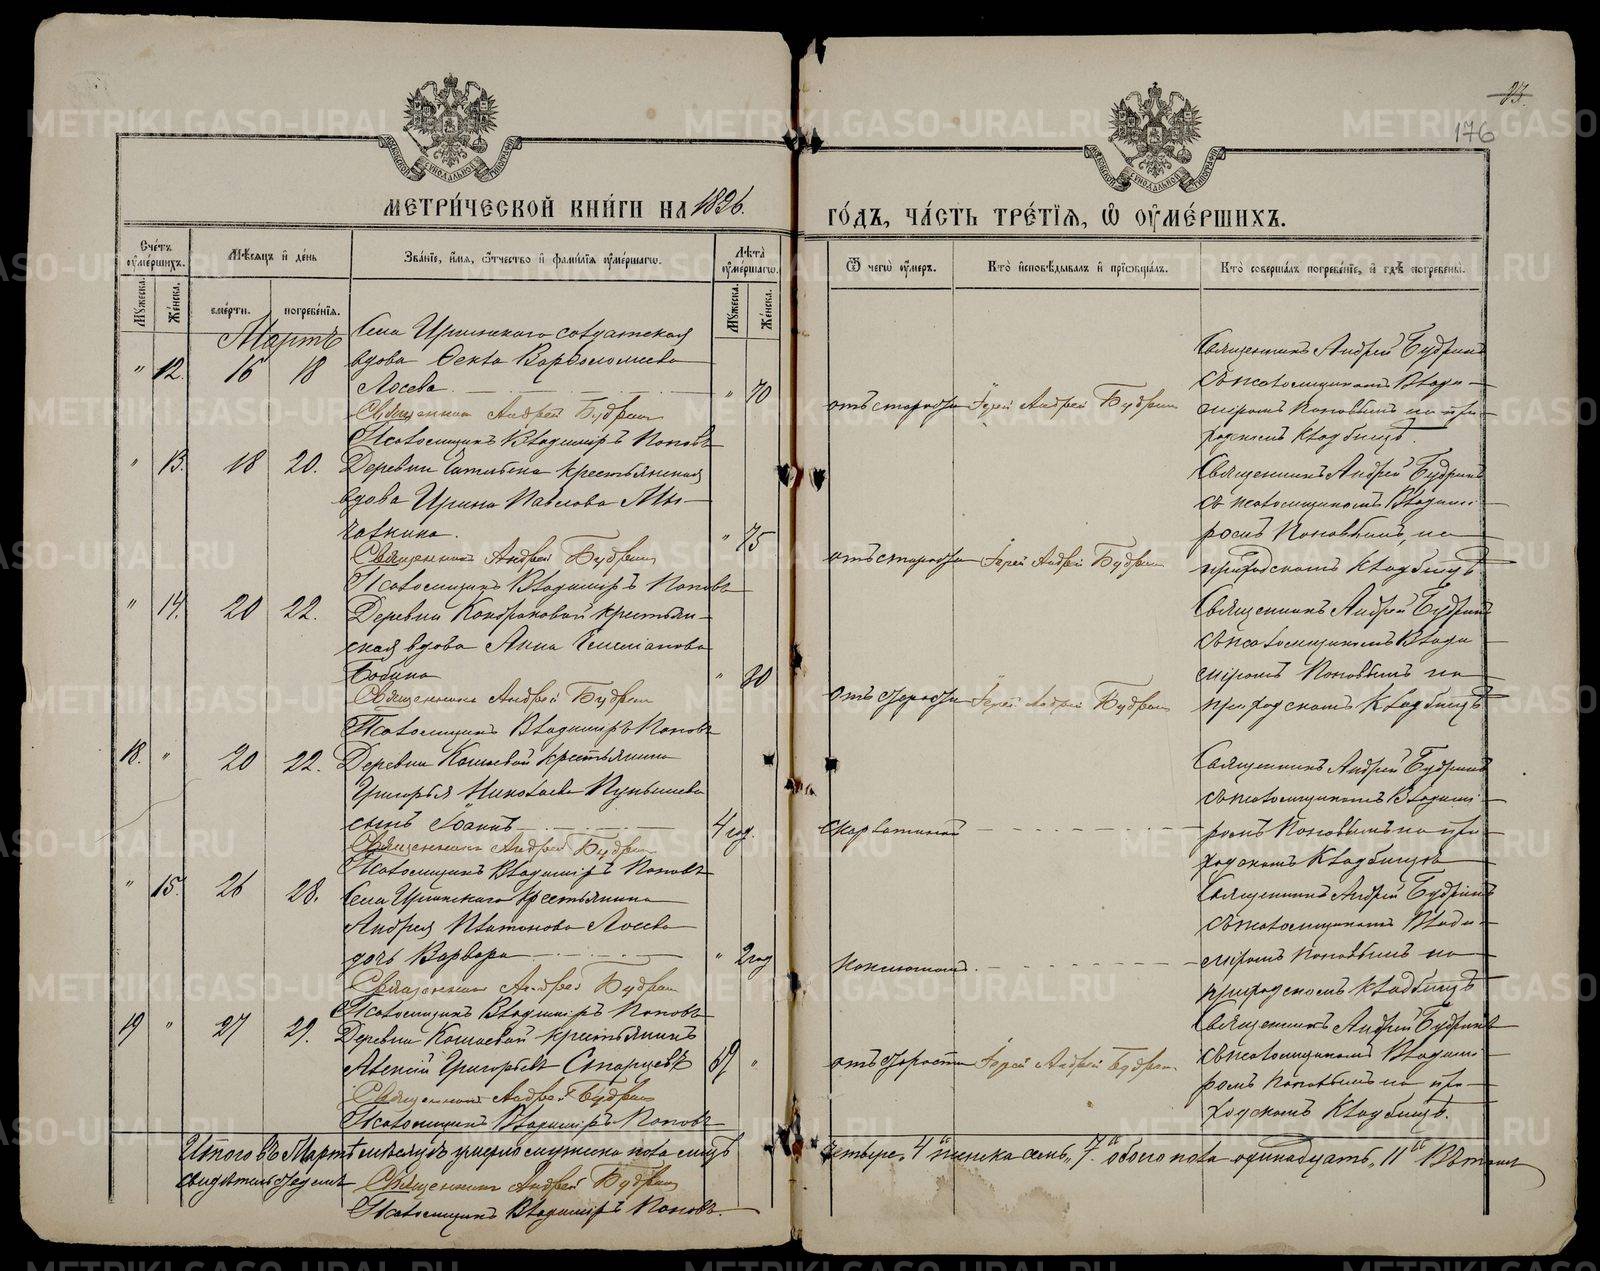 23.
176
МОСКОВСКОЙ СУНОДАЛЬНОЙ ТИПОГРАФІИ
МОСКОВСКОЙ СУНОДАЛЬНОЙ ТИПОГРАФІИ
МЕТРИ́ЧЕСКОЙ КНИ́ГИ НА 1896.
ГО́ДЪ, ЧА́СТЬ ТРЕ́ТІѦ, Ѿ ОУМЕ́РШИХЪ.
Сче́тъ оумершихъ.
Мѣсяцъ и день
Зва́нїе, и́мѧ, ѻ́тчество и фами́лїѧ оуме́ршагѡ.
Лѣта оумершагѡ.
Мужеска.
Женска.
смерти.
погребе́нїѧ.
Мужеска.
Женска.
Ѿ чегѡ̀ оу́меръ.
Кто̀ и҆сповѣ́дывалъ и҆ прїѡбща́лъ.
Кто̀ соверша́лъ погребе́нїе, и҆ гдѣ̀ погребены̀.
Мартъ
" 12. 16 18
Села Иргинскаго солдатская
вдова Ѳекла Варѳоломеева
Лосева " 70
Священникъ Андрей Будринъ
Псаломщикъ Владиміръ Поповъ
отъ старости
Іерей Андрей Будринъ
Священникъ Андрей Будринъ
съ псаломщикомъ Влади-
міромъ Поповымъ на при-
ходскомъ кладбищѣ.
" 13. 18 20.
Деревни крестьянская
вдова Ирина Павлова
" 75
Священникъ Андрей Будринъ
Псаломщикъ Владиміръ Поповъ
отъ старости
Іерей Андрей Будринъ
Священникъ Андрей Будринъ
съ псаломщикомъ Владимі-
ромъ Поповымъ, на
приходскомъ кладбищѣ
" 14. 20 22.
Деревни Кондраковой крестьян-
ская вдова Анна Емеліанова
Бабина " 80
Священникъ Андрей Будринъ
Псаломщикъ Владиміръ Поповъ
отъ старости
Іерей Андрей Будринъ
Священникъ Андрей Будринъ
съ псаломщикомъ Влади
міромъ Поповымъ на
приходскомъ кладбищѣ
18. " 20 22.
Деревни Кошаевой крестьянина
Григорья Николаева
сынъ Іоаннъ 4 год.
Священникъ Андрей Будринъ
Псаломщикъ Владиміръ Поповъ
скарлатиной
Священникъ Андрей Будринъ
съ псаломщикомъ Владимі-
ромъ Поповымъ на при-
ходскомъ кладбищѣ
" 15. 26 28.
Села Иргинскаго крестьянина
Андрея Платонова Лосева
дочь Варвара " 2 год
Священникъ Андрей Будринъ
Псаломщикъ Владиміръ Поповъ
коклюшомъ
Священникъ Андрей Будринъ
съ псаломщикомъ Влади-
міромъ Поповымъ на
приходскомъ кладбищѣ
19 " 27 29.
Деревни Кошаевой крестьянинъ
Алексій Григорьевъ Старцевъ "
Священникъ Андрей Будринъ
Псаломщикъ Владиміръ Поповъ
отъ старости
Іерей Андрей Будринъ
Священникъ Андрей Будринъ
съ псаломщикомъ Владимі-
ромъ Поповымъ на при-
ходскомъ кладбищѣ.
Итого въ Мартѣ мѣсяцѣ умерло мужска пола
четыре "4" женска семь "7" обоего пола одинадцать "11"
Священникъ Андрей Будринъ
Псаломщикъ Владиміръ Поповъ.
METRIKI.GASO-URAL.RU